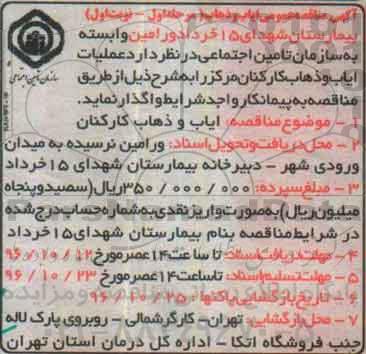 آگهی مناقصه عمومی ایاب و ذهاب (مرحله اول - نوبت اول)
بیمارستان شهدای ۱۵ خرداد ورامین وابسته
به سازمان تامین اجتماعی در نظر دارد عملیات
ایاب و ذهاب کارکنان مرکز را به شرح ذیل از طریق
مناقصه به پیمانکار واجد شرایط واگذار نماید.
۱ - موضوع مناقصه: ایاب و ذهاب کارکنان
۲ - محل دریافت و تحویل اسناد: ورامین نرسیده به میدان
ورودی شهر - دبیرخانه بیمارستان شهدای ۱۵ خرداد
۳ - مبلغ سپرده: ۳۵۰/۰۰۰/۰۰۰ ریال (سیصد و پنجاه
میلیون ریال) به صورت واریز نقدی به شماره حساب درج شده
در شرایط مناقصه بنام بیمارستان شهدای ۱۵ خرداد
۴- مهلت دریافت اسناد: تا ساعت ۱۴ عصر مورخ ۹۶/۱۰/۱۲
۵- مهلت تسلیم اسناد: تا ساعت ۱۴ عصر مورخ ۹۶/۱۰/۲۳
۶ - تاریخ بازگشایی پاکتها: ۹۶/۱۰/۲۵
۷ - محل بازگشایی: تهران - کارگر شمالی - روبروی پارک لاله
جنب فروشگاه اتکا - اداره کل درمان استان تهران
سازمان تأمین اجتماعی